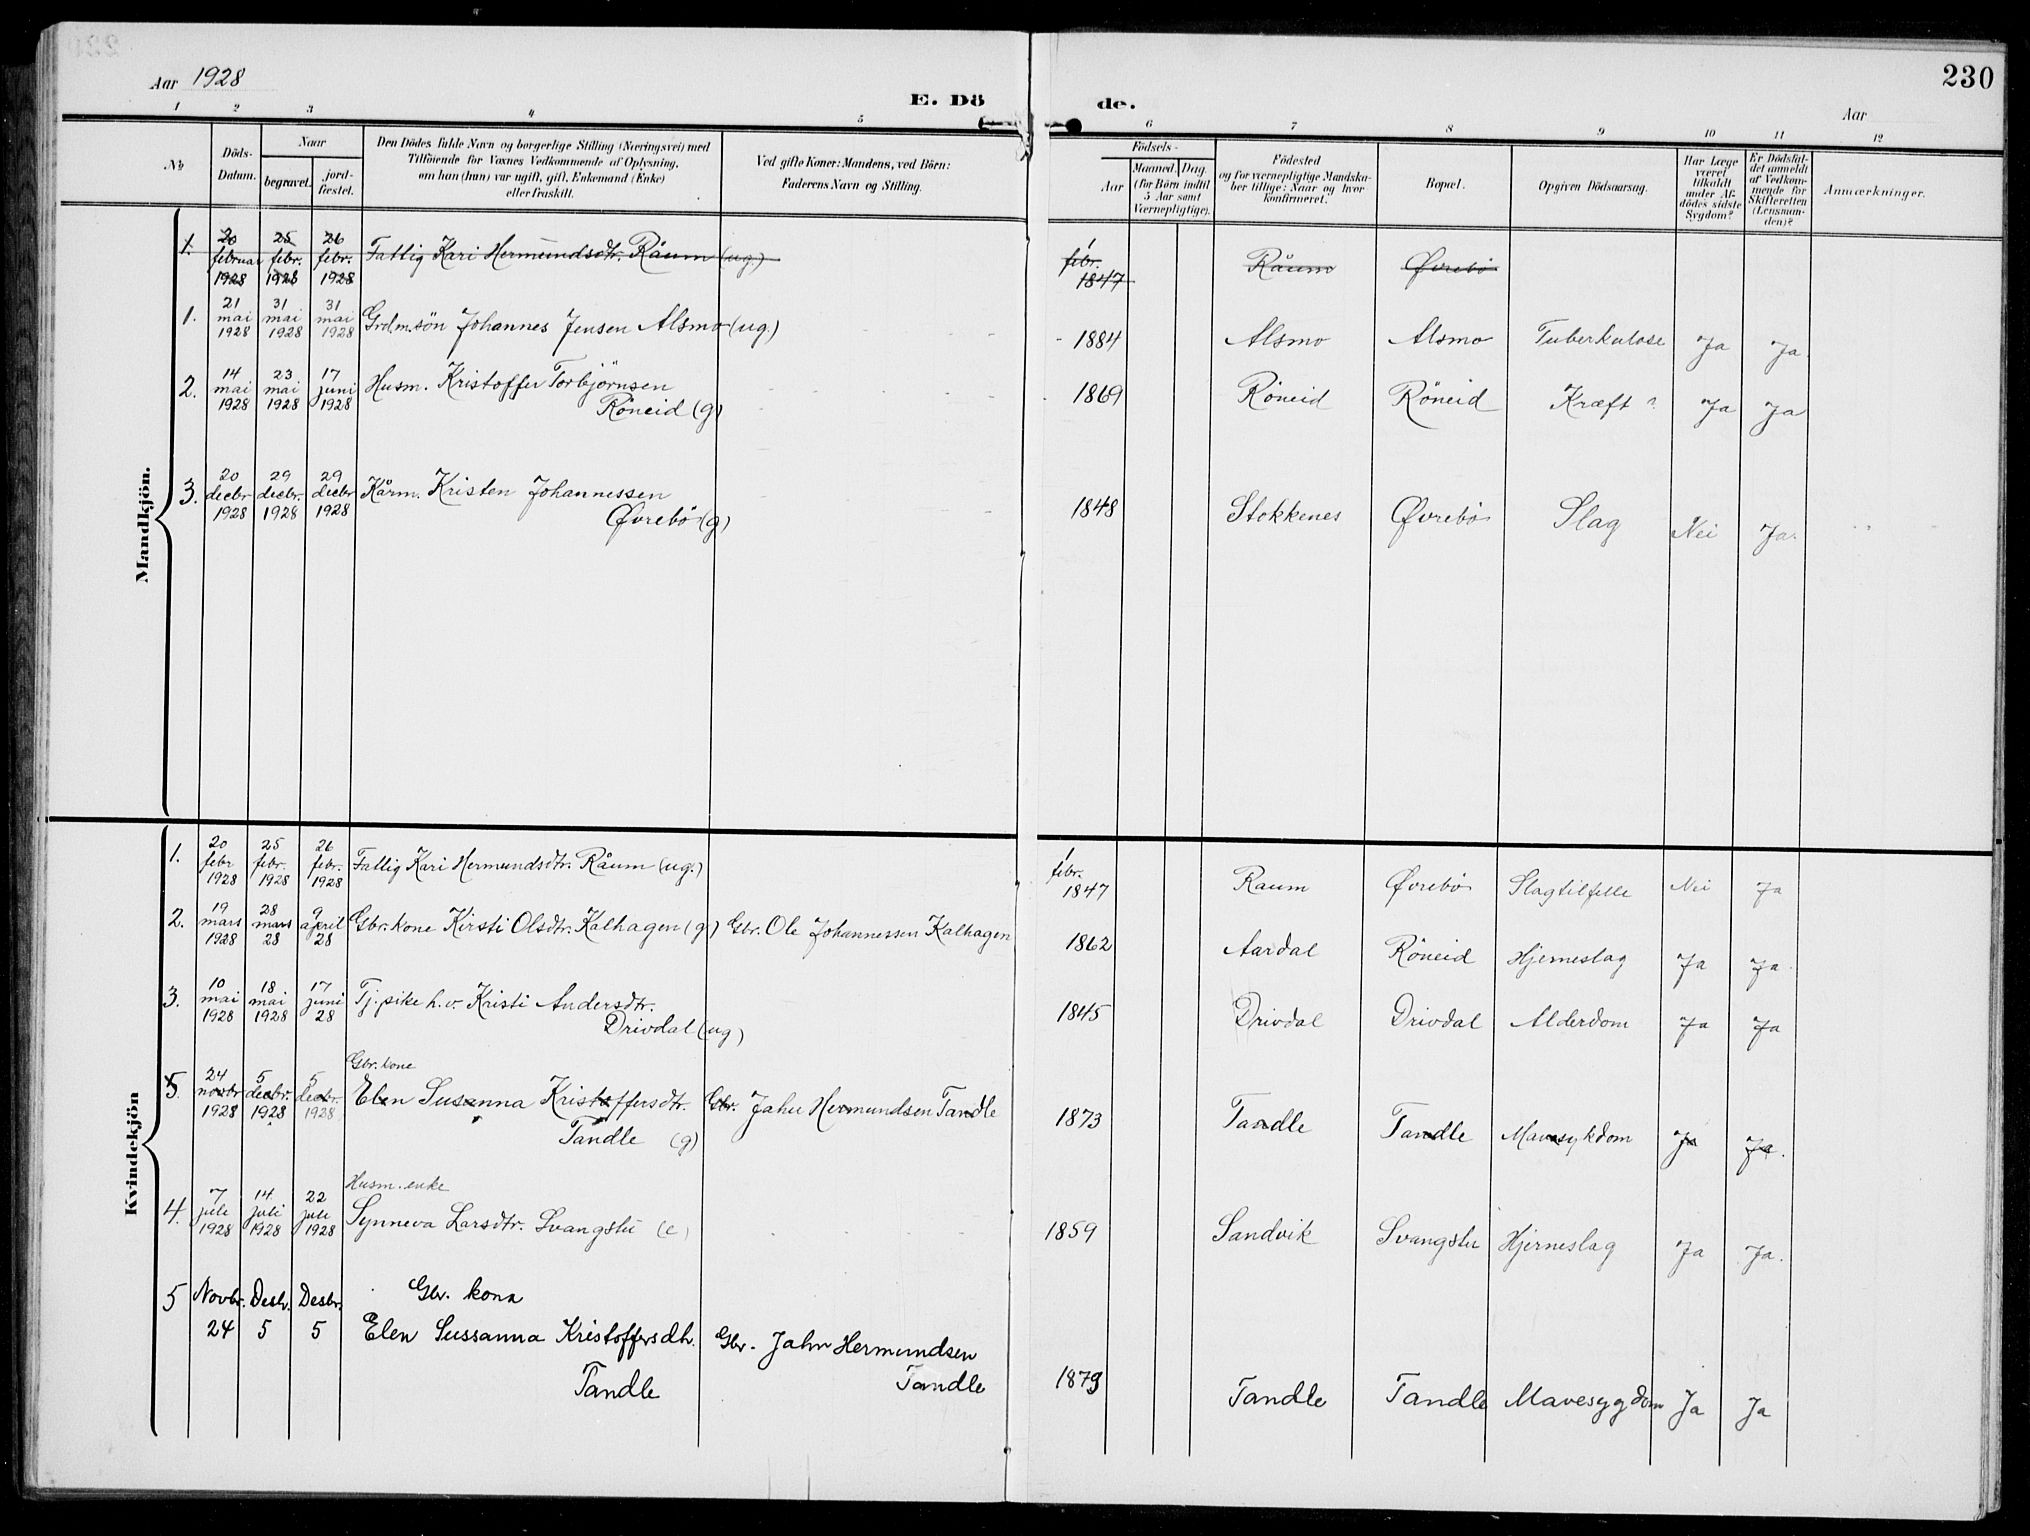 230
Aar 1928
E. Dö
de.
Aar
1 2 3 4 5 6 7 8 9 10 11 12
No
Döds-Datum.
Naar
begravet.
jord-fæstet.
Den Dödes fulde Navn og borgerlige Stilling (Næringsvei) med
Tilföiende for Voxnes Vedkommende af Oplysning,
om han (hun) var ugift, gift, Enkemand (Enke)
eller fraskilt.
Ved gifte Koner: Mandens, ved Börn:
Faderens Navn og Stilling.
Födsels-
Aar
Maaned. Dag.
(for Börn indtil
5 Aar samt
Værnepligtige).
Födested
og for værnepligtige Mandska-
ber tillige: Naar og hvor
konfirmeret.
Bopæl.
Opgiven Dödsaarsag.
Har Læge
været
tilkaldt
under Af-
dödes sidste
Sygdom?
Er Dödsfal-
det anmeldt
af Vedkom-
mende for
Skifteretten
(Lensman-
den)?
Anmærkninger.
Mandkjön.
1. 20 februar 1928 25 febr. 1928 26 febr. 1928 Fattig Kari Hermundsdtr. Råum (ug.) 1 febr. 1847 Råum Øvrebö
1. 21 mai 1928 31 mai 1928 31 mai 1928 Grdm.sön Johannes Jensen Alsmo (ug.) 1884 Alsmo Alsmo Tuberkulose Ja Ja.
2. 14 mai 1928 23 mai 1928 17 juni 1928 Husm. Kristoffer Torbjörnsen
Röneid (g) 1869 Röneid Röneid Kræft ? Ja Ja
3. 20 decbr 1928 29 decbr. 1928 29 decbr 1928 Kårm. Kristen Johannessen
Øvrebö (g) 1848 Stokkenes Øvrebö Slag Nei Ja.
Kvindekjön
1. 20 febr 1928 25 febr. 1928 26 febr. 1928 Fattig Kari Hermundsdtr. Råum (ug.) 1 febr. 1847 Raum Øvrebö Slagtilfelle Nei Ja
2. 19 mars 1928 28 mars 28 9 april 28 Gbr.kone Kirsti Olsdtr. Kalhagen (g) Gbr. Ole Johannessen Kalhagen 1862 Aardal Röneid Hjerneslag Ja Ja.
3. 10 mai 1928 18 mai 1928 17 juni 28 Tj. pike h.v. Kristi Andersdtr.
Drivdal (ug) 1845 Drivdal Drivdal Alderdom Ja Ja
5. 24 novbr 1928 5 decbr. 1928 5 decbr. 1928 Gbr. kone
Elen Susanna Kristoffersdtr. Gbr. Jahn Hermundsen Tandle
Tandle (g) 1873 Tandle Tandle Mavesykdom Ja Ja.
4. 7 juli 1928 14 juli 1928 22 juli 1928 Husm. enke
Synneva Larsdtr. Svangstu (e) 1859 Sandvik Svangstu Hjerneslag Ja Ja.
5 Novbr. 24 Desbr. 5 Desbr. 5 Gbr. kona
Elen Sussanna Kristoffersdtr. Gbr. Jahn Hermundsen
Tandle Tandle 1873 Tandle Tandle Mavesygdom Ja Ja